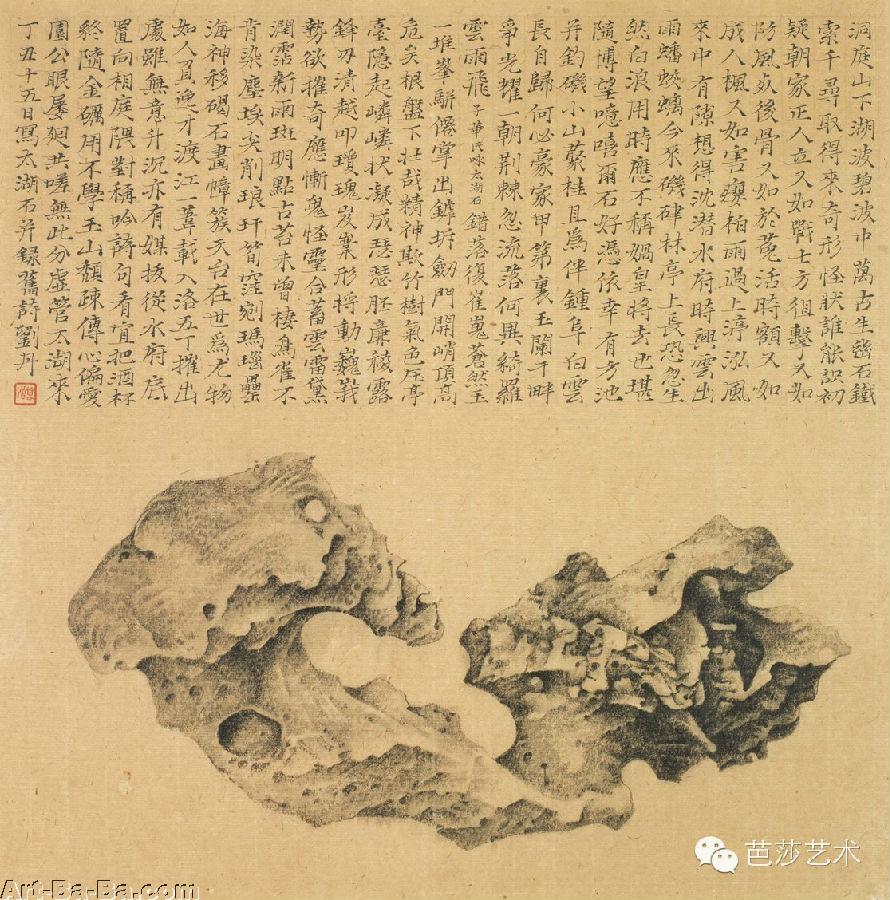 洞庭山下湖波碧波中萬古生幽石鐵
索千尋取得來奇形怪狀誰能識初
疑朝家正人立又如戰士方狙擊又如
防風死後骨又如於菟活時額又如
成人楓又如害癭柏雨過上渟泓風
來中有隙想得沈潛水府時興雲出
雨蟠蛟螭今來磯硉林亭上長恐忽生
然白浪用時應不稱媧皇將去也堪
隨博望噫嘻爾石好憑依幸有方池
并釣磯小山藂桂且為伴鍾阜白雲
長自歸何必豪家甲第裏玉闌干畔
爭光耀一朝荊棘忽流落何異綺羅
雲雨飛 子華氏咏太湖石 錯落復崔嵬蒼然玉
一堆峯駢僊掌出罅坼劒門開峭頂高
危矣根盤下壯哉精神欺竹樹氣色壓亭
臺隱起嶙嶙狀凝成瑟瑟胚廉稜露
鋒刃清越叩瓊瑰岌業形將動巍峩
勢欲摧奇應慚鬼怪靈合蓄雲雷黛
潤霑新雨斑明點古苔未曾棲鳥雀不
肯染塵埃尖削琅玕筍窪剜瑪瑙罍
海神移碣石畫幛簇天台在世為尤物
如人負逸才渡江一葦載入洛五丁推出
處雖無意升沉亦有媒拔從水府底
置向相庭隈對稱吟詩句看宜把酒杯
終隨金礪用不學玉山頹疎傅心偏愛
園公眼屢廻共嗟無此分虛管太湖來
丁丑十五日寫太湖石并録舊詩劉丹
芭莎艺术
Art-Ba-Ba.com